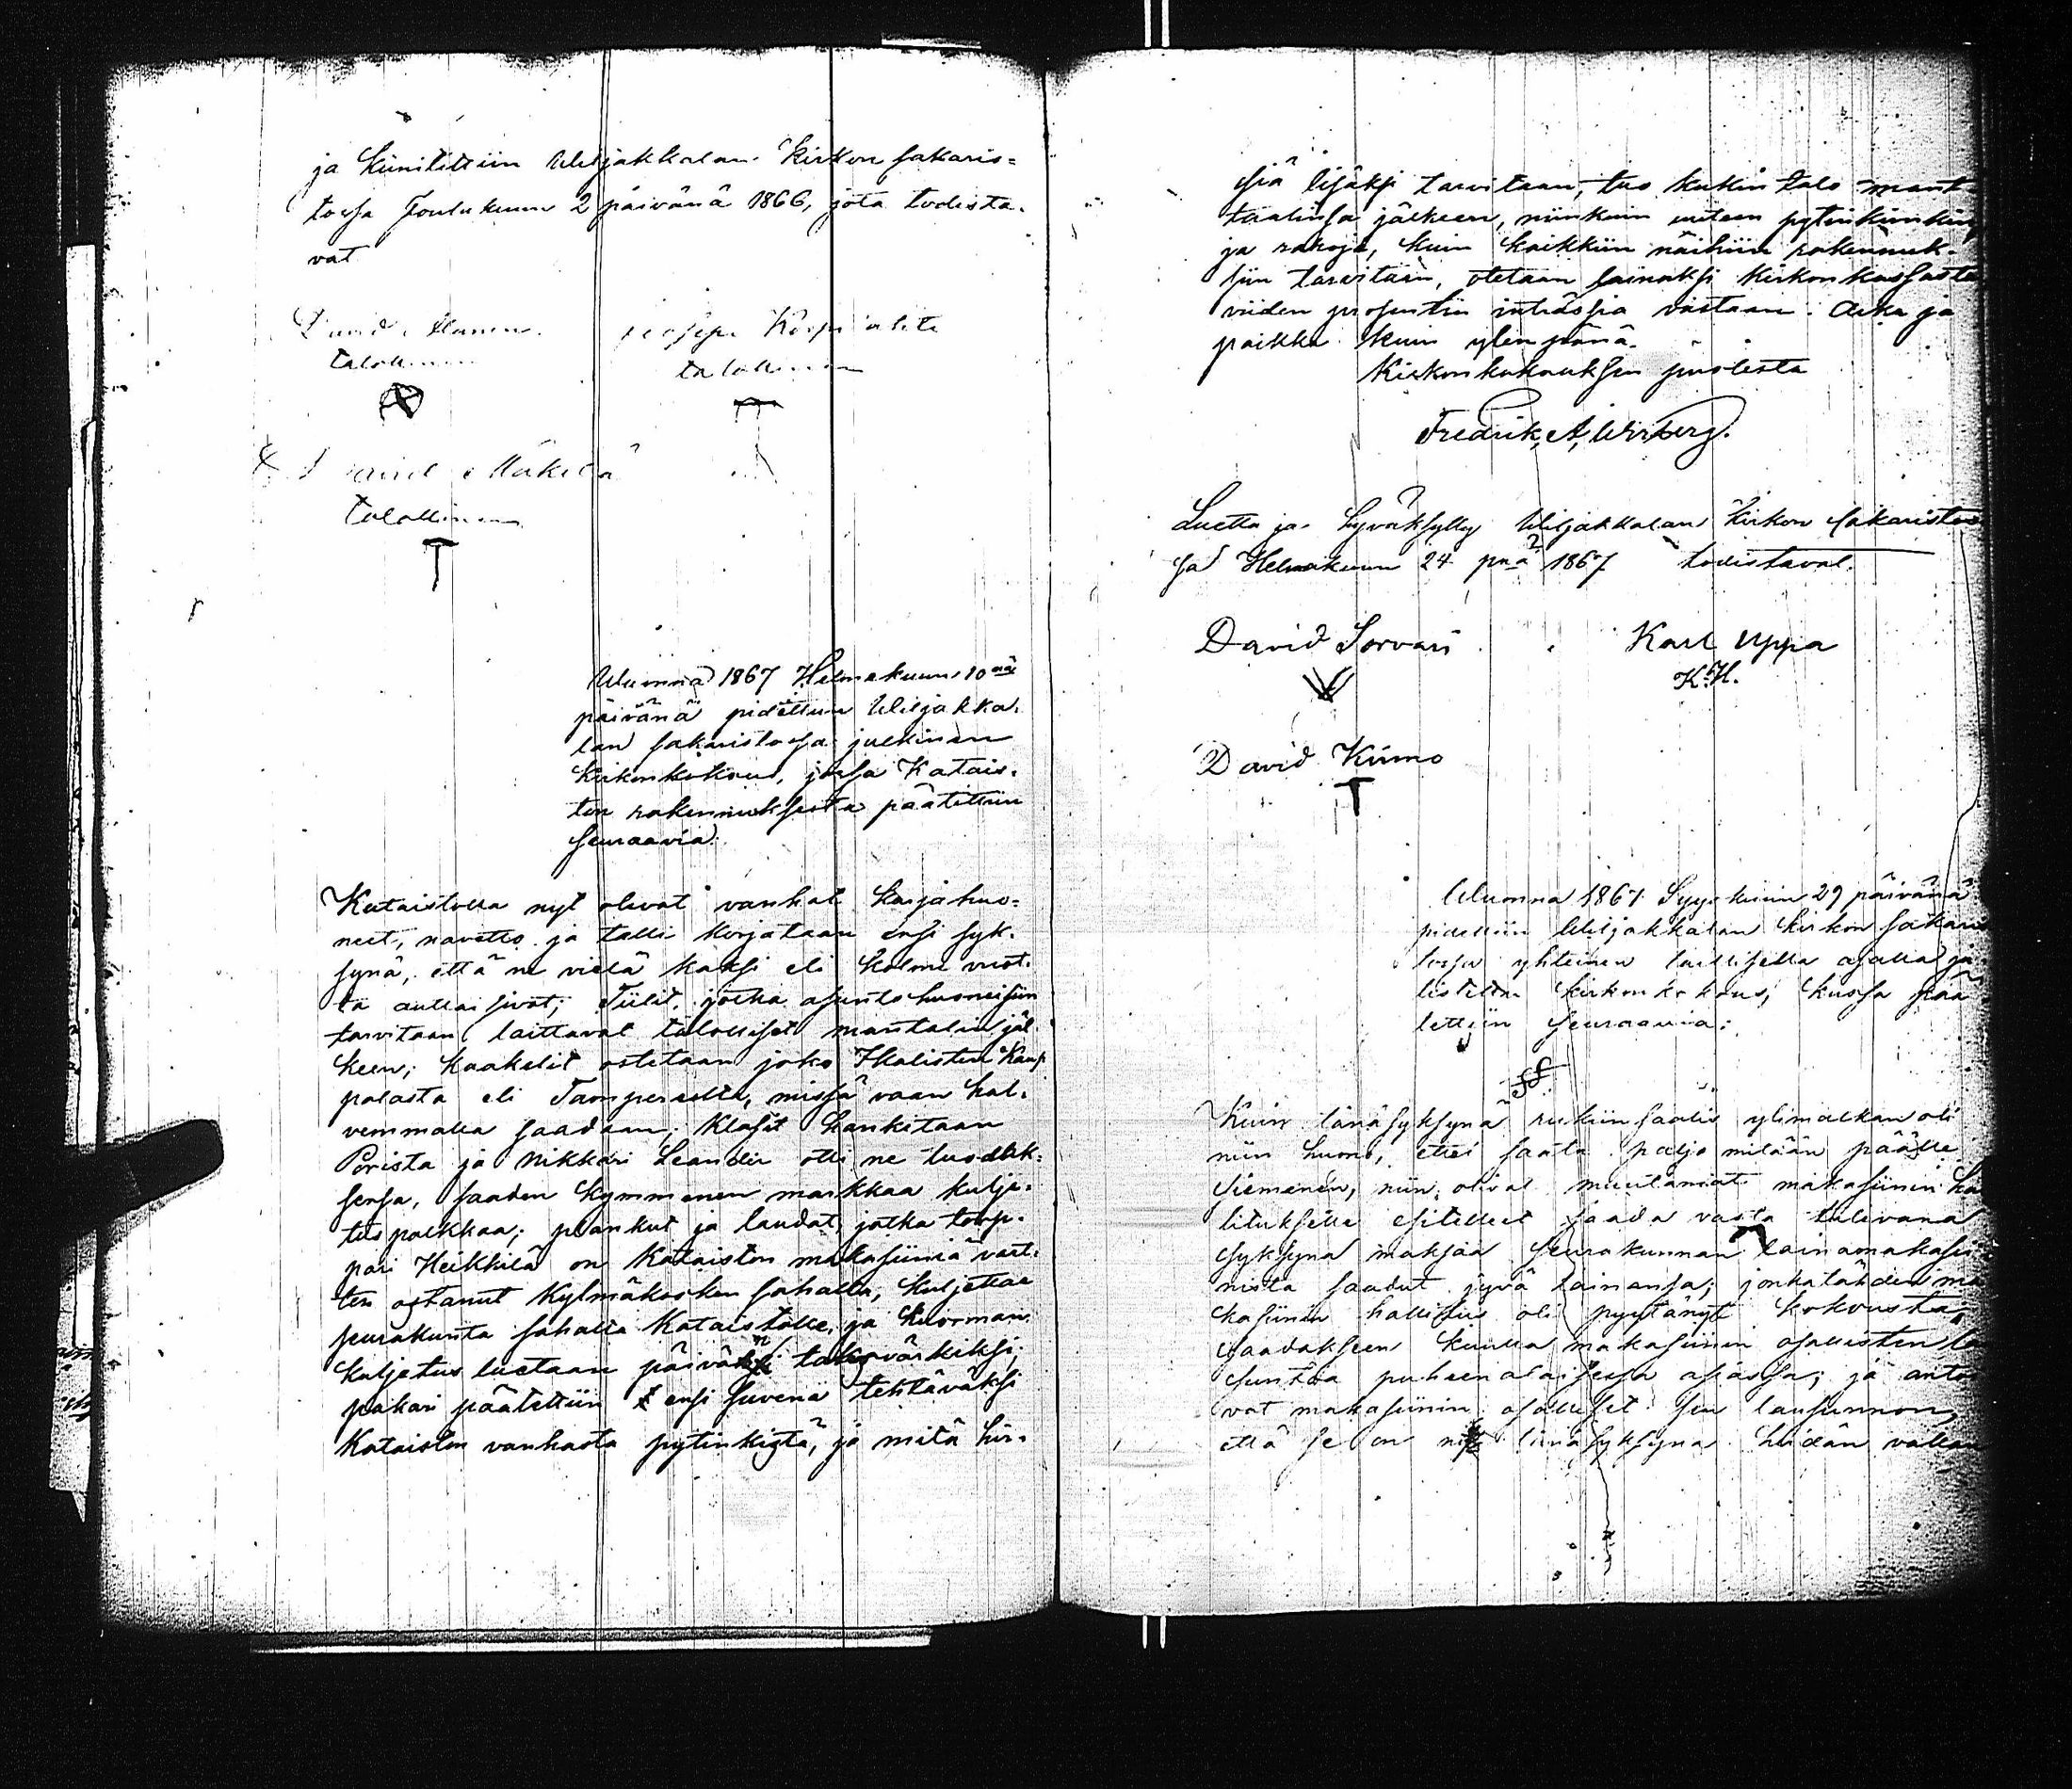 ja kuuliteltiin Wiljakkalan Kirkon sakaris=
tossa Joulukuun 2 päivänä 1866, jota todista-
vat
David
talollinen
talollinen
David Mäkelä
talollinen
Wuonna 1867 Helmekuun 10
päivänä pidettiin Wiljakka-
lan sakaristossa julkinen
Kirkonkokous, jossa Katais-
ton rakennuksesta päätettiin
seuraavia:
Kataistolla nyt olevat vanhat karjahuo=
neet, navetto ja talli korjataan ensi syk-
synä, että ne vielä kaksi eli kolme vuot-
ta auttaisivat; Tiilit, jotka asuntohuoneisiin
tarvitaan laittavat talolliset mantalin jäl
keen; kaakelit ostetaan joko Ikalisten Kaup
palasta eli Tampereelta, missä vaan hal-
vemmalla saadaan; klasit hankitaan
Porista ja Nikkari Leander otti ne tuodak-
sensa, saaden kymmenen markkaa kulje-
tus palkkaa; plankut ja laudat, jotka torp-
pari Heikkilä on Kataiston makasiiniä vart-
ten ostanut Kylmäkosken sahalta, kuljettaa
seurakunta sahalta Kataistolle, ja kuorman
kuljetus luetaan päivän taksvärkiksi;
pakari päätettiin ensi suvena tehtäväksi
Kataiston vanhasta pytinkistä, ja mitä hir-
siä lisäksi tarvitaan, tuo kukin talo mant
taalinsa jälkeen, niinkuin uuteen pytinkiinkin,
ja rahoja, kuin kaikkiin näihin rakennuk-
siin tarvitaan, otetaan lainaksi kirkonkassasta
viiden prosentin inträssiä vastaan. Aika ja
paikka kuin ylempänä.
Kirkonkokouksen puolesta
Fredrik A. Wirzberg.
Luettu ja hyväksytty Wiljakkalan Kirkon sakaristos
sa Helmakuun 24 pnä 1867 todistavat.
David Sorvari Karl Uppa
K.H.
David Kiimo
Wuonna 1867 Syyskuun 29 päivänä
pidettiin Wiljakkalan Kirkon sakaris
tossa yhteinen laillisella ajalla ju
listettu kirkonkokous, kussa pää
tettiin seuraavia:
Kuin tänäsyksynä rukiin saalis ylimalkan oli
niin huono, ettei saata paljo mitään päälle
siemenen, niin olivat muutamat makasiinin hal
lituksella esitelleet saada vasta tulevana
syksynä maksaa seurakunnan lainamakasii
nista saadut jyvä lainansa; jonkatähden ma
kasiinin hallitus oli pyytänyt kokousta,
saadakseen kuulla makasiinin osallisten la
suntoa puheenalaisessa asiassa; ja anto
vat makasiinin osalliset sen lausunnon,
että se on tänäsyksynä heidän vallan